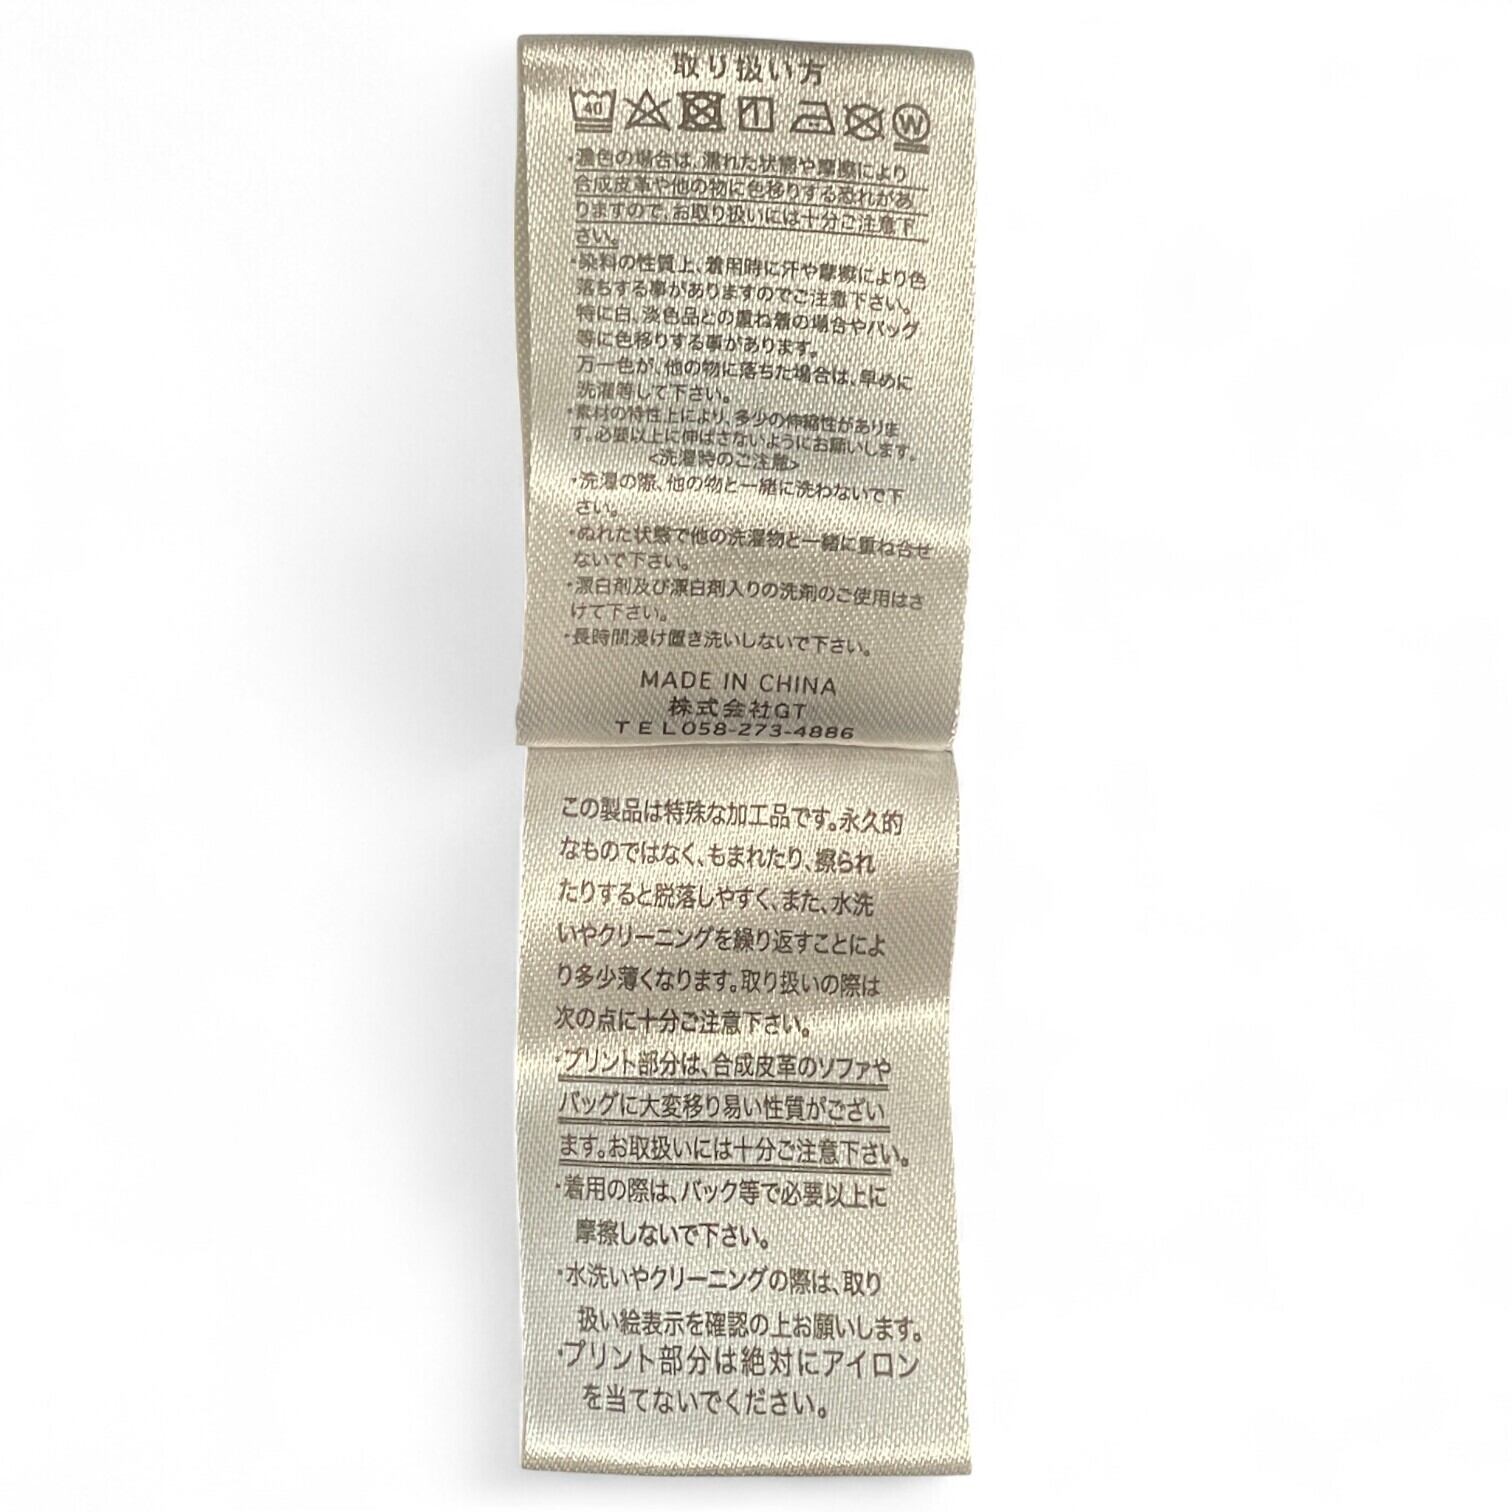 取り扱い方
40
W
・濃色の場合は、濡れた状態や摩擦により
合成皮革や他の物に色移りする恐れがあ
りますので、お取り扱いには十分ご注意下
さい。
・染料の性質上、着用時に汗や摩擦により色
落ちする事がありますのでご注意下さい。
特に白、淡色品との重ね着の場合やバッグ
等に色移りする事があります。
万一色が、他の物に落ちた場合は、早めに
洗濯等して下さい。
・素材の特性上により、多少の伸縮性がありま
す。必要以上に伸ばさないようにお願いします。
<洗濯時のご注意>
・洗濯の際、他の物と一緒に洗わないで下
さい。
・ぬれた状態で他の洗濯物と一緒に重ね合せ
ないで下さい。
・漂白剤及び漂白剤入りの洗剤のご使用はさ
けて下さい。
・長時間浸け置き洗いしないで下さい。
MADE IN CHINA
株式会社GT
TEL058-273-4886
この製品は特殊な加工品です。永久的
なものではなく、もまれたり、擦られ
たりすると脱落しやすく、また、水洗
いやクリーニングを繰り返すことによ
り多少薄くなります。取り扱いの際は
次の点に十分ご注意下さい。
・プリント部分は、合成皮革のソファや
バッグに大変移り易い性質がござい
ます。お取扱いには十分ご注意下さい。
・着用の際は、バック等で必要以上に
摩擦しないで下さい。
・水洗いやクリーニングの際は、取り
扱い絵表示を確認の上お願いします。
・プリント部分は絶対にアイロン
を当てないでください。